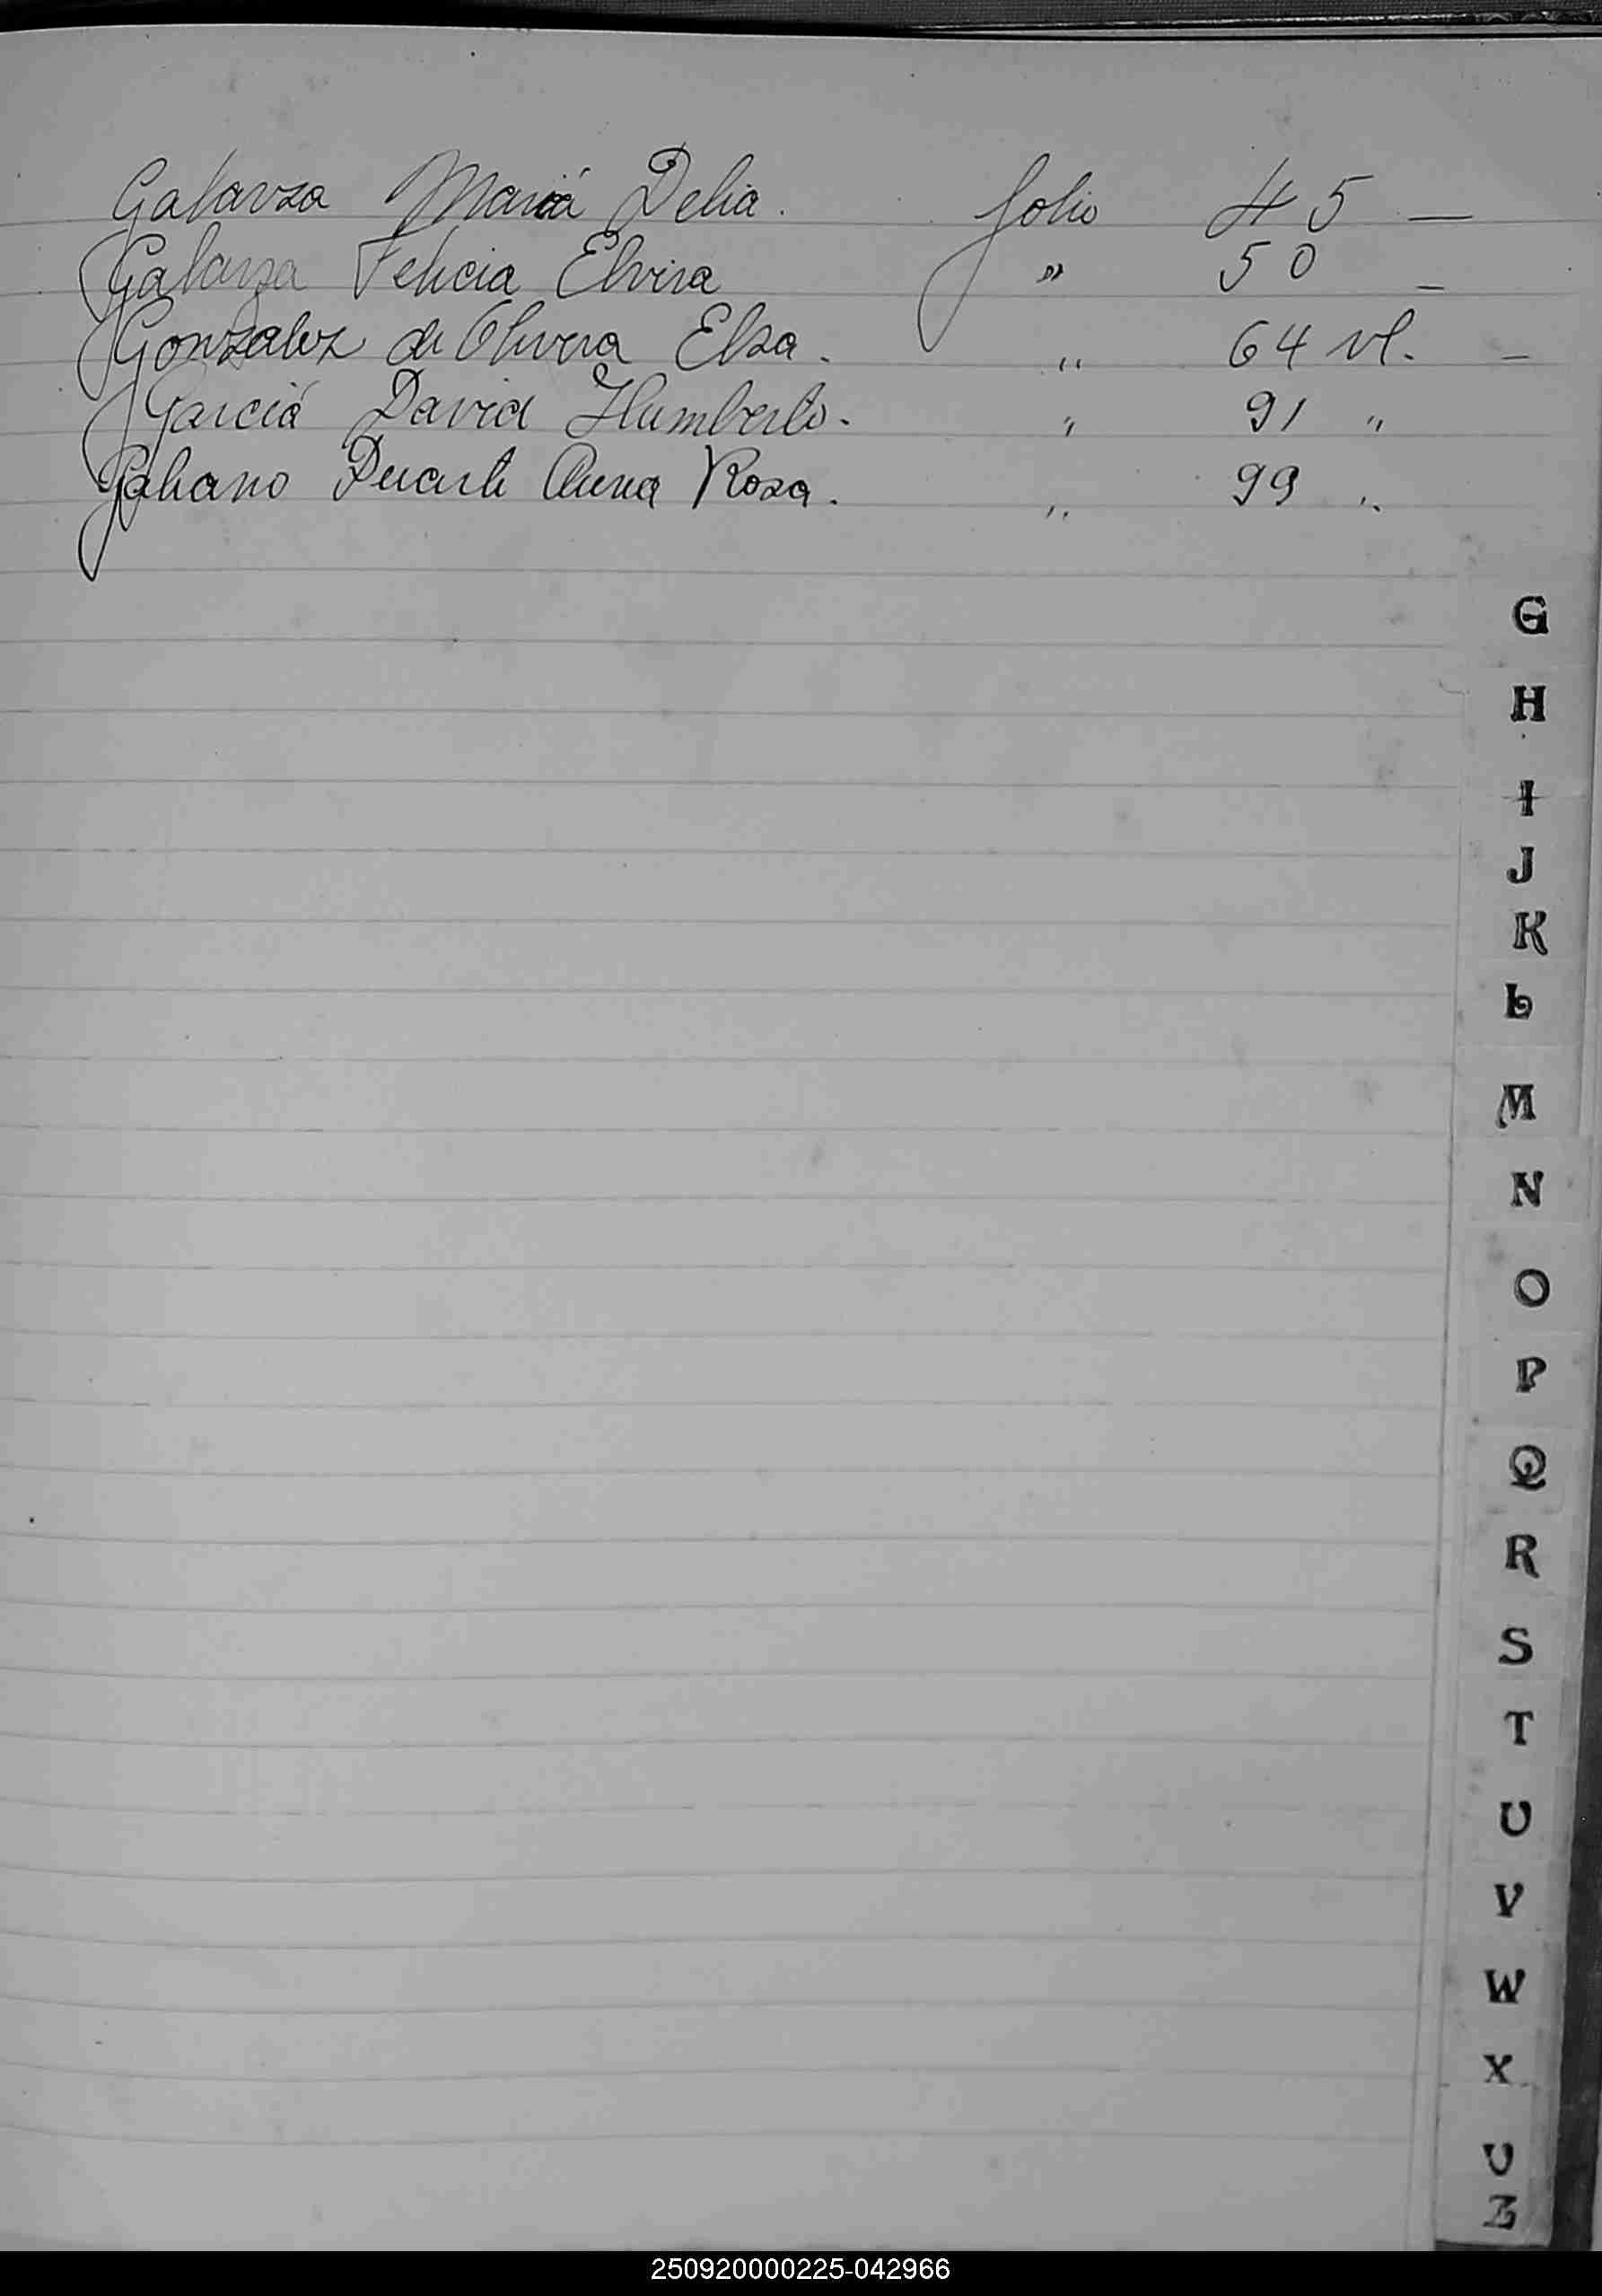 Galarza Mariá Delia. folio 45 —
Galarza Felicia Elvira » 50 —
Gonzalez de Olivera Elsa. " 64 vl. —
Garciá David Humberto. " 91 "
Galiano Duarte Anna Rosa. " 99 "
G
H
I
J
K
L
M
N
O
P
Q
R
S
T
U
V
W
X
U
Z
250920000225-042966